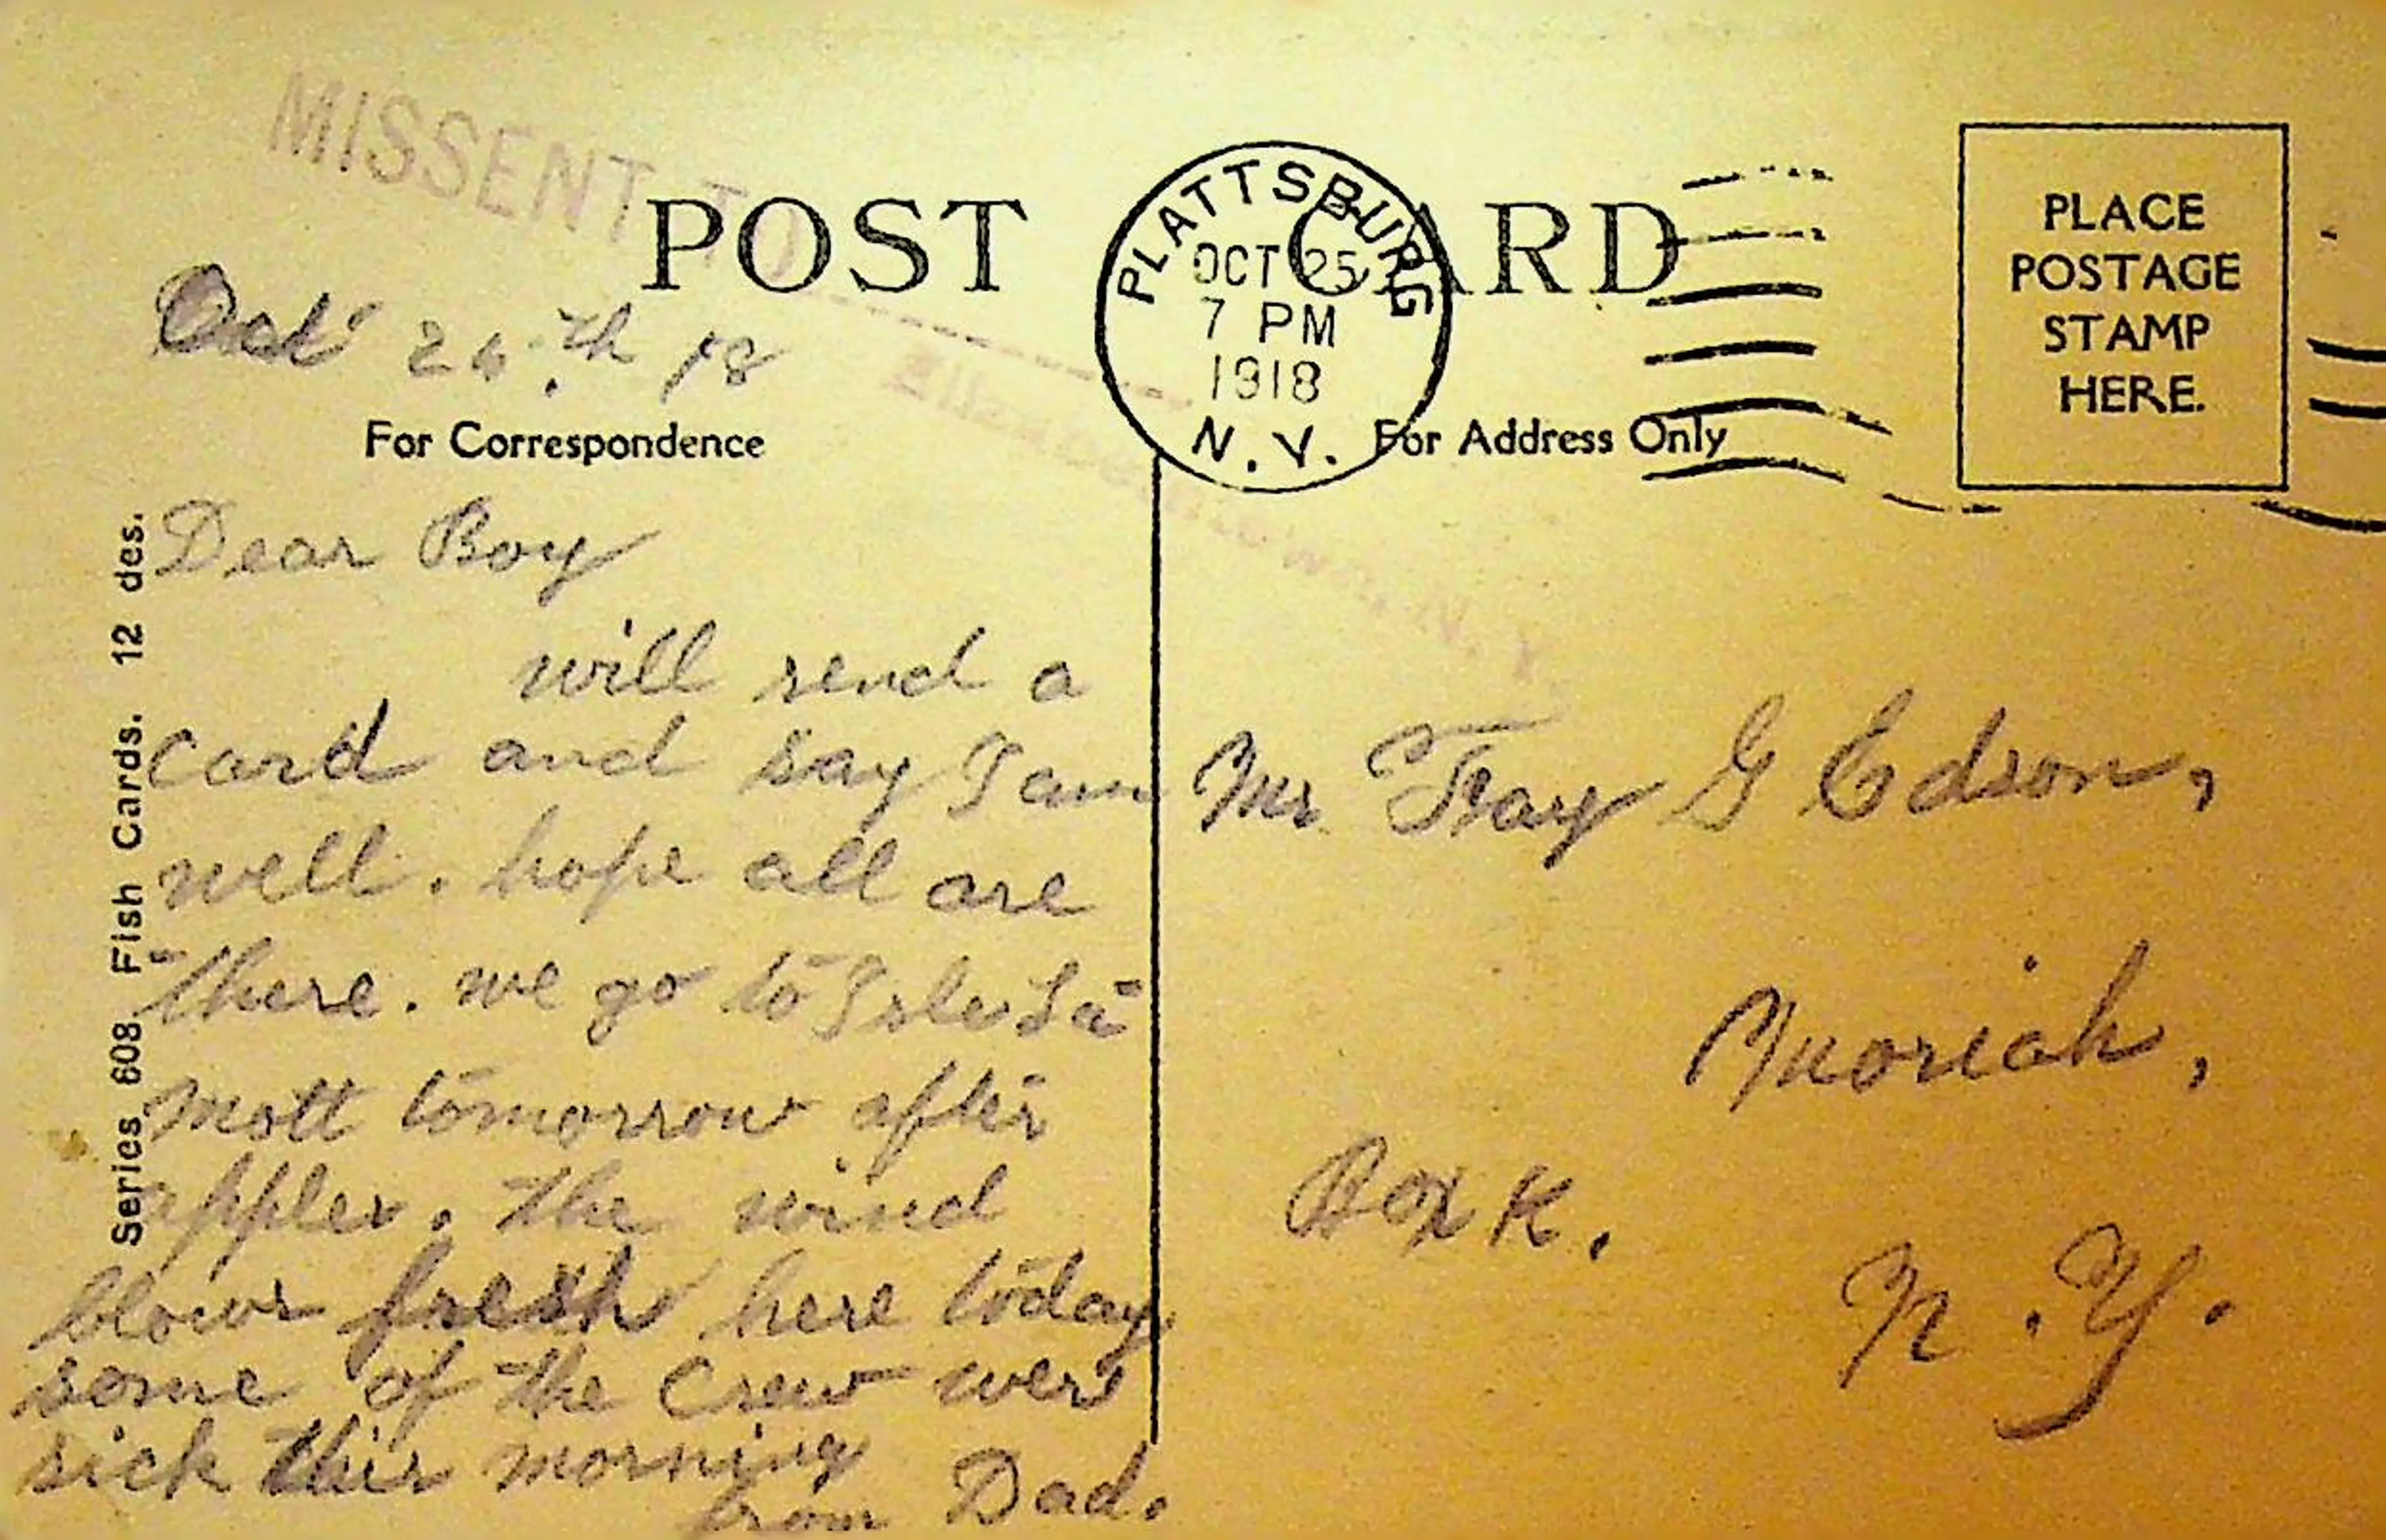 MISSENT TO
POST CARD
PLATTSBURG
OCT 25
7 PM
1918
N.Y.
PLACE
POSTAGE
STAMP
HERE.
Oct 24.th 18
For Correspondence
For Address Only
Series 608 Fish Cards. 12 des.
Dear Boy
will send a
card and say I am
well. hope all are
there. we go to Isle La
Mott tomorrow after
apples. The wind
blows fresh here today
some of the Crew were
sick this morning
from Dad.
Mr Fray G Edson,
Moriah,
Box K.
N.Y.